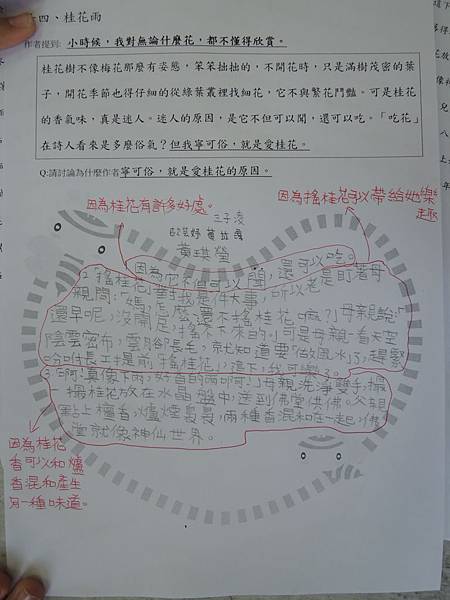 十四、桂花雨
作者提到: 小時候，我對無論什麼花，都不懂得欣賞。
桂花樹不像梅花那麼有姿態，笨笨拙拙的，不開花時，只是滿樹茂密的葉
子，開花季節也得仔細的從綠葉叢裡找細花，它不與繁花鬥豔。可是桂花
的香氣味，真是迷人。迷人的原因，是它不但可以聞，還可以吃。「吃花」
在詩人看來是多麼俗氣？但我寧可俗，就是愛桂花。
Q:請討論為什麼作者寧可俗，就是愛桂花的原因。
因為桂花有許多好處。
因為搖桂花可以帶給她樂
趣
黃琪瑩
因為它不但可以聞，還可以吃。
2.搖桂花對我是件大事，所以老是盯著母
親問：「媽，怎麼還不搖桂花嘛？」母親說：「
還早呢，沒開足，搖不下來的。」可是母親一看天空
陰雲密布，雲腳長毛，就知道要做風水了，趕緊
吩咐長工提前「搖桂花」，這下，我可樂了。
3.啊！真像下雨，好香的雨啊！」母親洗淨雙手，撮
一撮桂花放在水晶盤中，送到佛堂供佛。父親
點上檀香，爐煙裊裊，兩種香混在一起，佛
堂就像神仙世界。
因為桂花
香可以和爐
香混和產生
另一種味道。